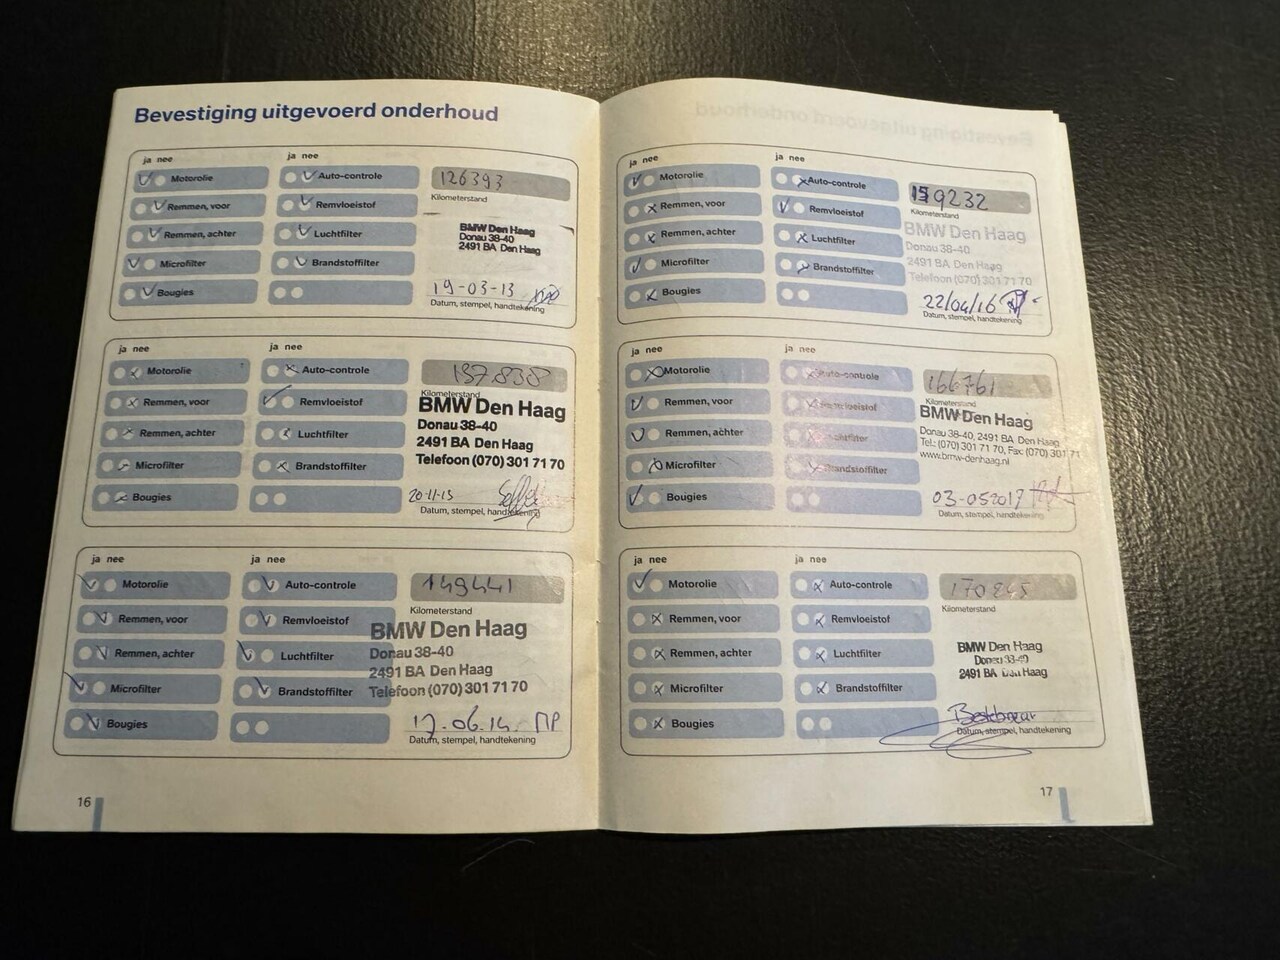 Bevestiging uitgevoerd onderhoud
ja nee
ja nee
Motorolie
Auto-controle
126393
Kilometerstand
Remmen, voor
Remvloeistof
Remmen, achter
Luchtfilter
BMW Den Haag
Donau 38-40
2491 BA Den Haag
Microfilter
Brandstoffilter
Bougies
19-03-13
Datum, stempel, handtekening
ja nee
ja nee
Motorolie
Auto-controle
137.838
Kilometerstand
Remmen, voor
Remvloeistof
BMW Den Haag
Donau 38-40
Remmen, achter
Luchtfilter
2491 BA Den Haag
Telefoon (070) 301 71 70
Microfilter
Brandstoffilter
Bougies
20-11-13
Datum, stempel, handtekening
ja nee
ja nee
Motorolie
Auto-controle
149441
Kilometerstand
Remmen, voor
Remvloeistof
BMW Den Haag
Donau 38-40
Remmen, achter
Luchtfilter
2491 BA Den Haag
Telefoon (070) 301 71 70
Microfilter
Brandstoffilter
Bougies
17-06-14
Datum, stempel, handtekening
16
ja nee
ja nee
Motorolie
Auto-controle
159232
Kilometerstand
Remmen, voor
Remvloeistof
BMW Den Haag
Donau 38-40
Remmen, achter
Luchtfilter
2491 BA Den Haag
Telefoon (070) 301 71 70
Microfilter
Brandstoffilter
Bougies
22/04/16
Datum, stempel, handtekening
ja nee
ja nee
Motorolie
Auto-controle
166761
Kilometerstand
Remmen, voor
Remvloeistof
BMW Den Haag
Donau 38-40, 2491 BA Den Haag
Tel.: (070) 301 71 70, Fax: (070) 301 71
www.bmw-denhaag.nl
Remmen, achter
Luchtfilter
Microfilter
Brandstoffilter
Bougies
03-052017
Datum, stempel, handtekening
ja nee
ja nee
Motorolie
Auto-controle
170845
Kilometerstand
Remmen, voor
Remvloeistof
BMW Den Haag
Donau 38-40
2491 BA Den Haag
Remmen, achter
Luchtfilter
Microfilter
Brandstoffilter
Bougies
Datum, stempel, handtekening
17